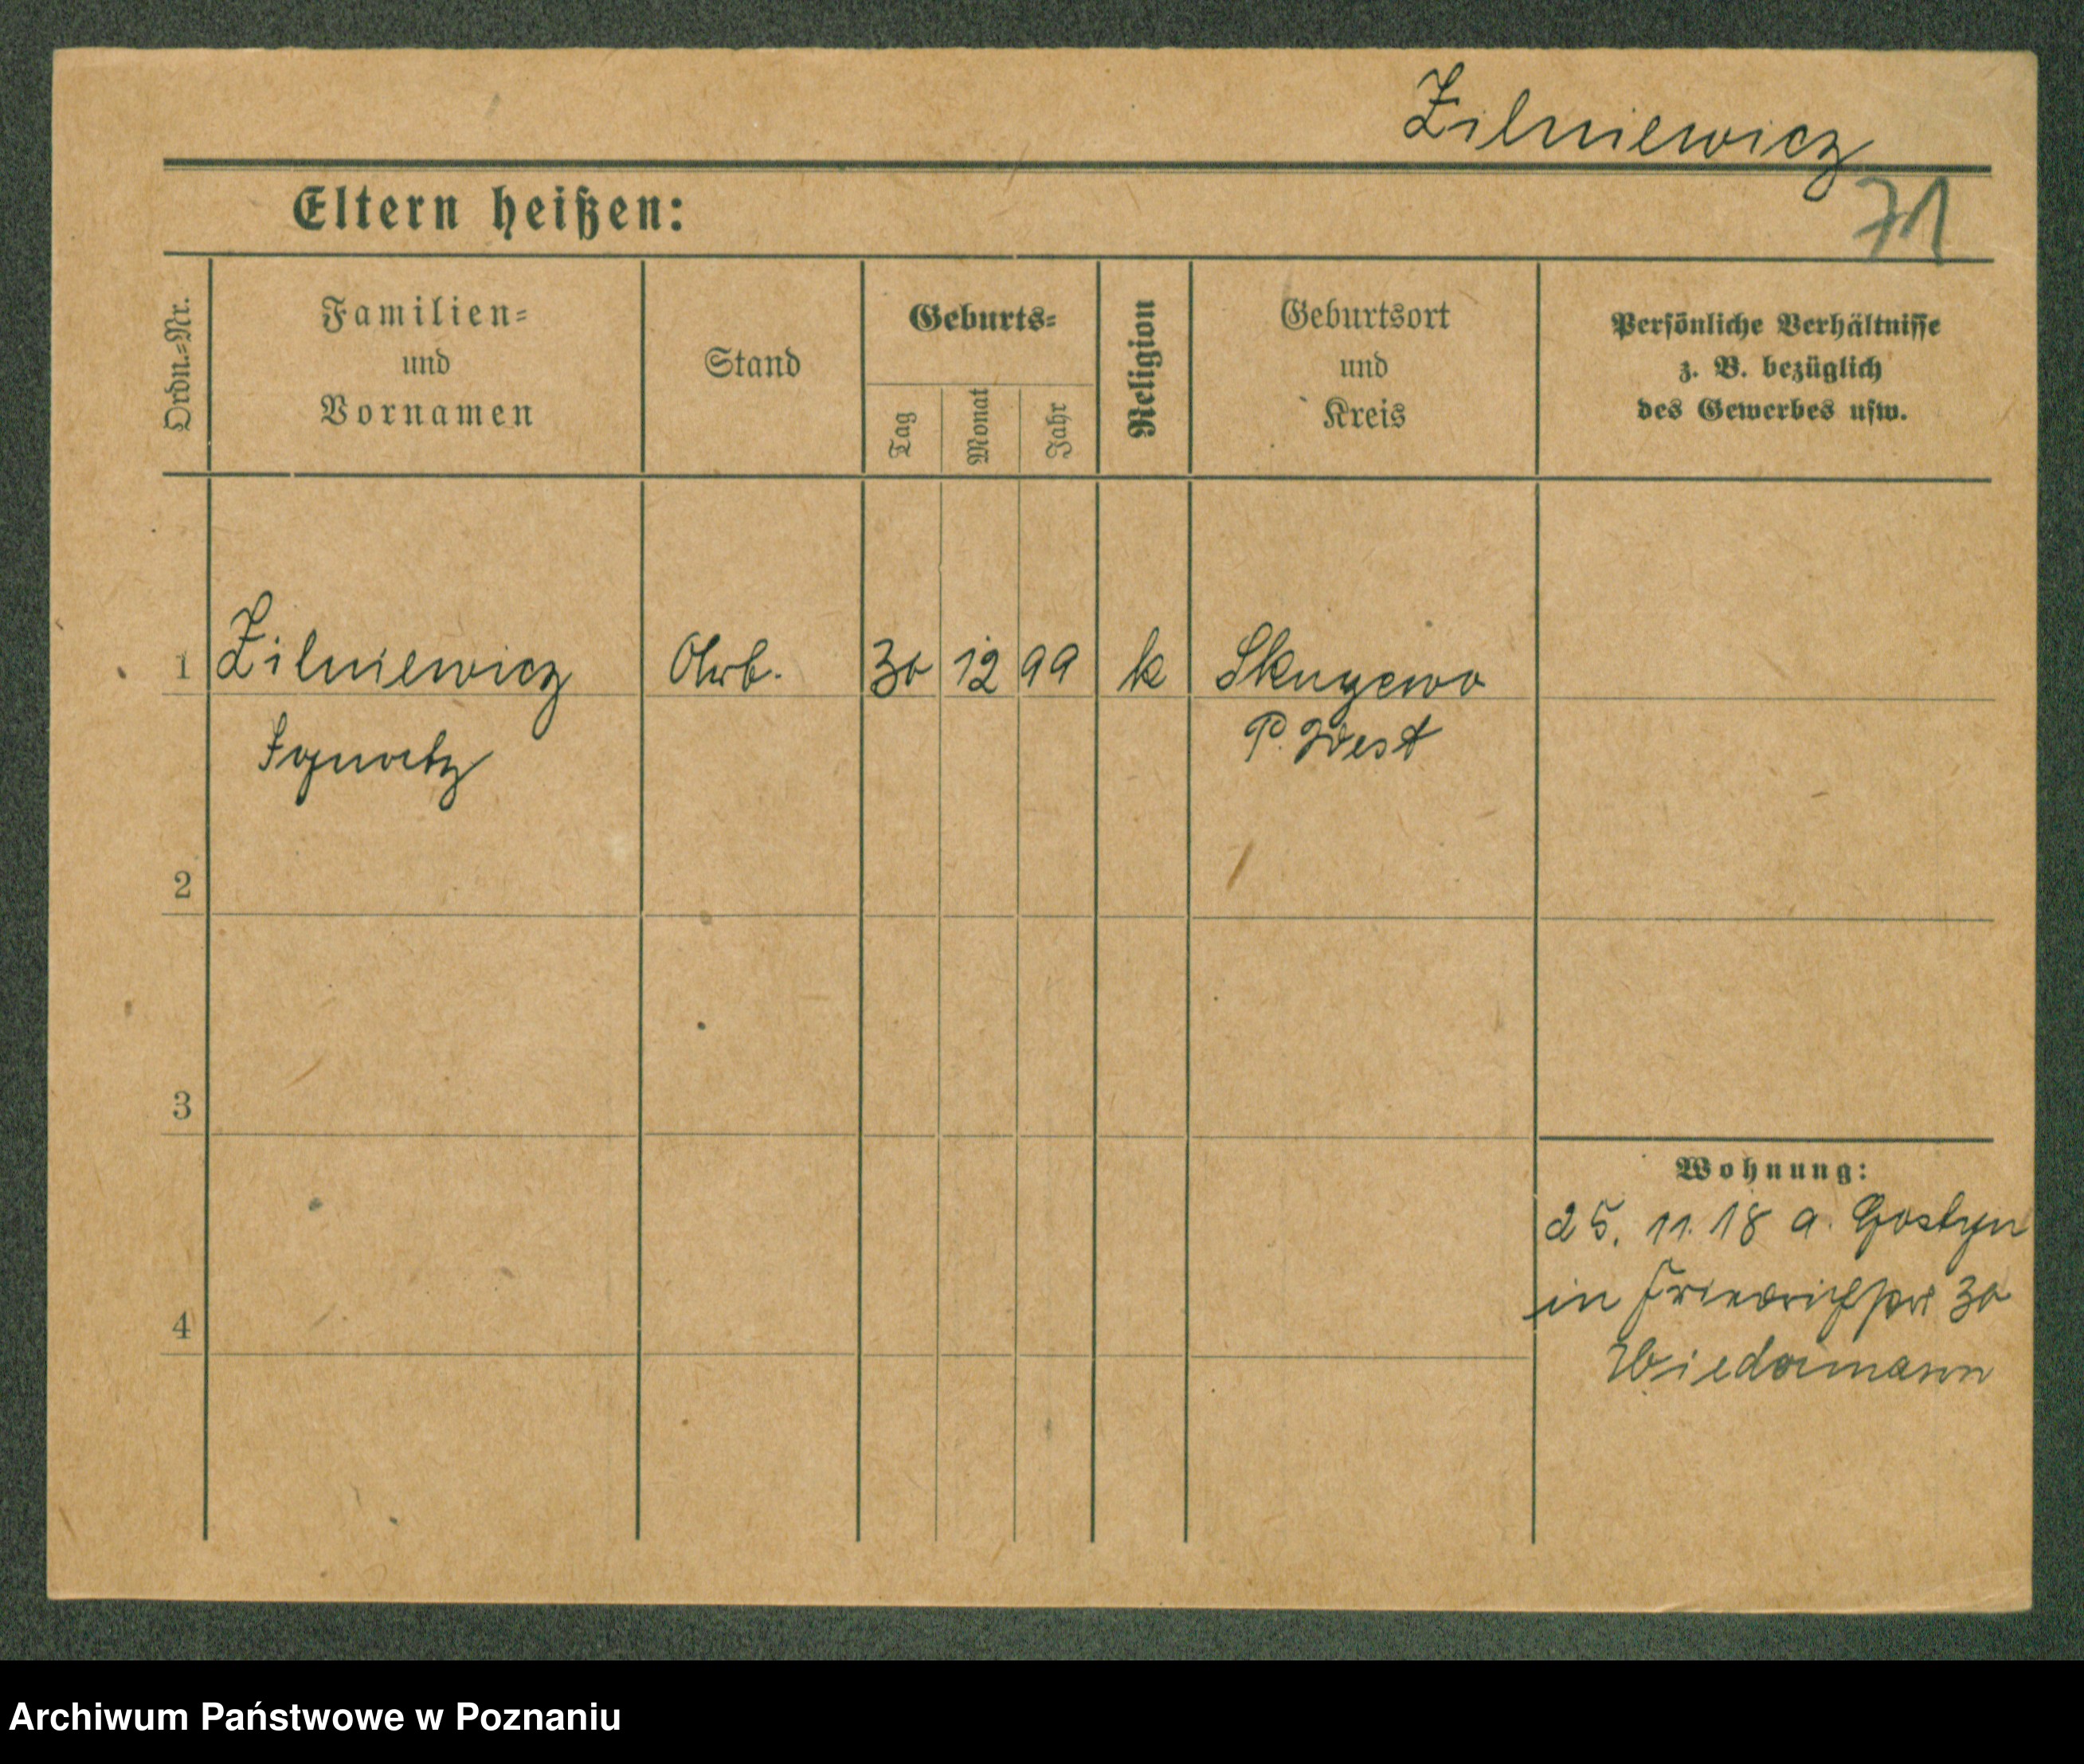 Zilniewicz
71
Eltern heißen:
Ordn.=Nr.
Familien=
und
Vornamen
Stand
Geburts=
Tag
Monat
Jahr
Religion
Geburtsort
und
Kreis
Persönliche Verhältnisse
z. B. bezüglich
des Gewerbes usw.
1 Zilniewicz 30 12 99 k
Ignatz P. West
2
3
4
Wohnung:
25. 11. 18 a. Gostyn
in 30
Wiedermann
Archiwum Państwowe w Poznaniu